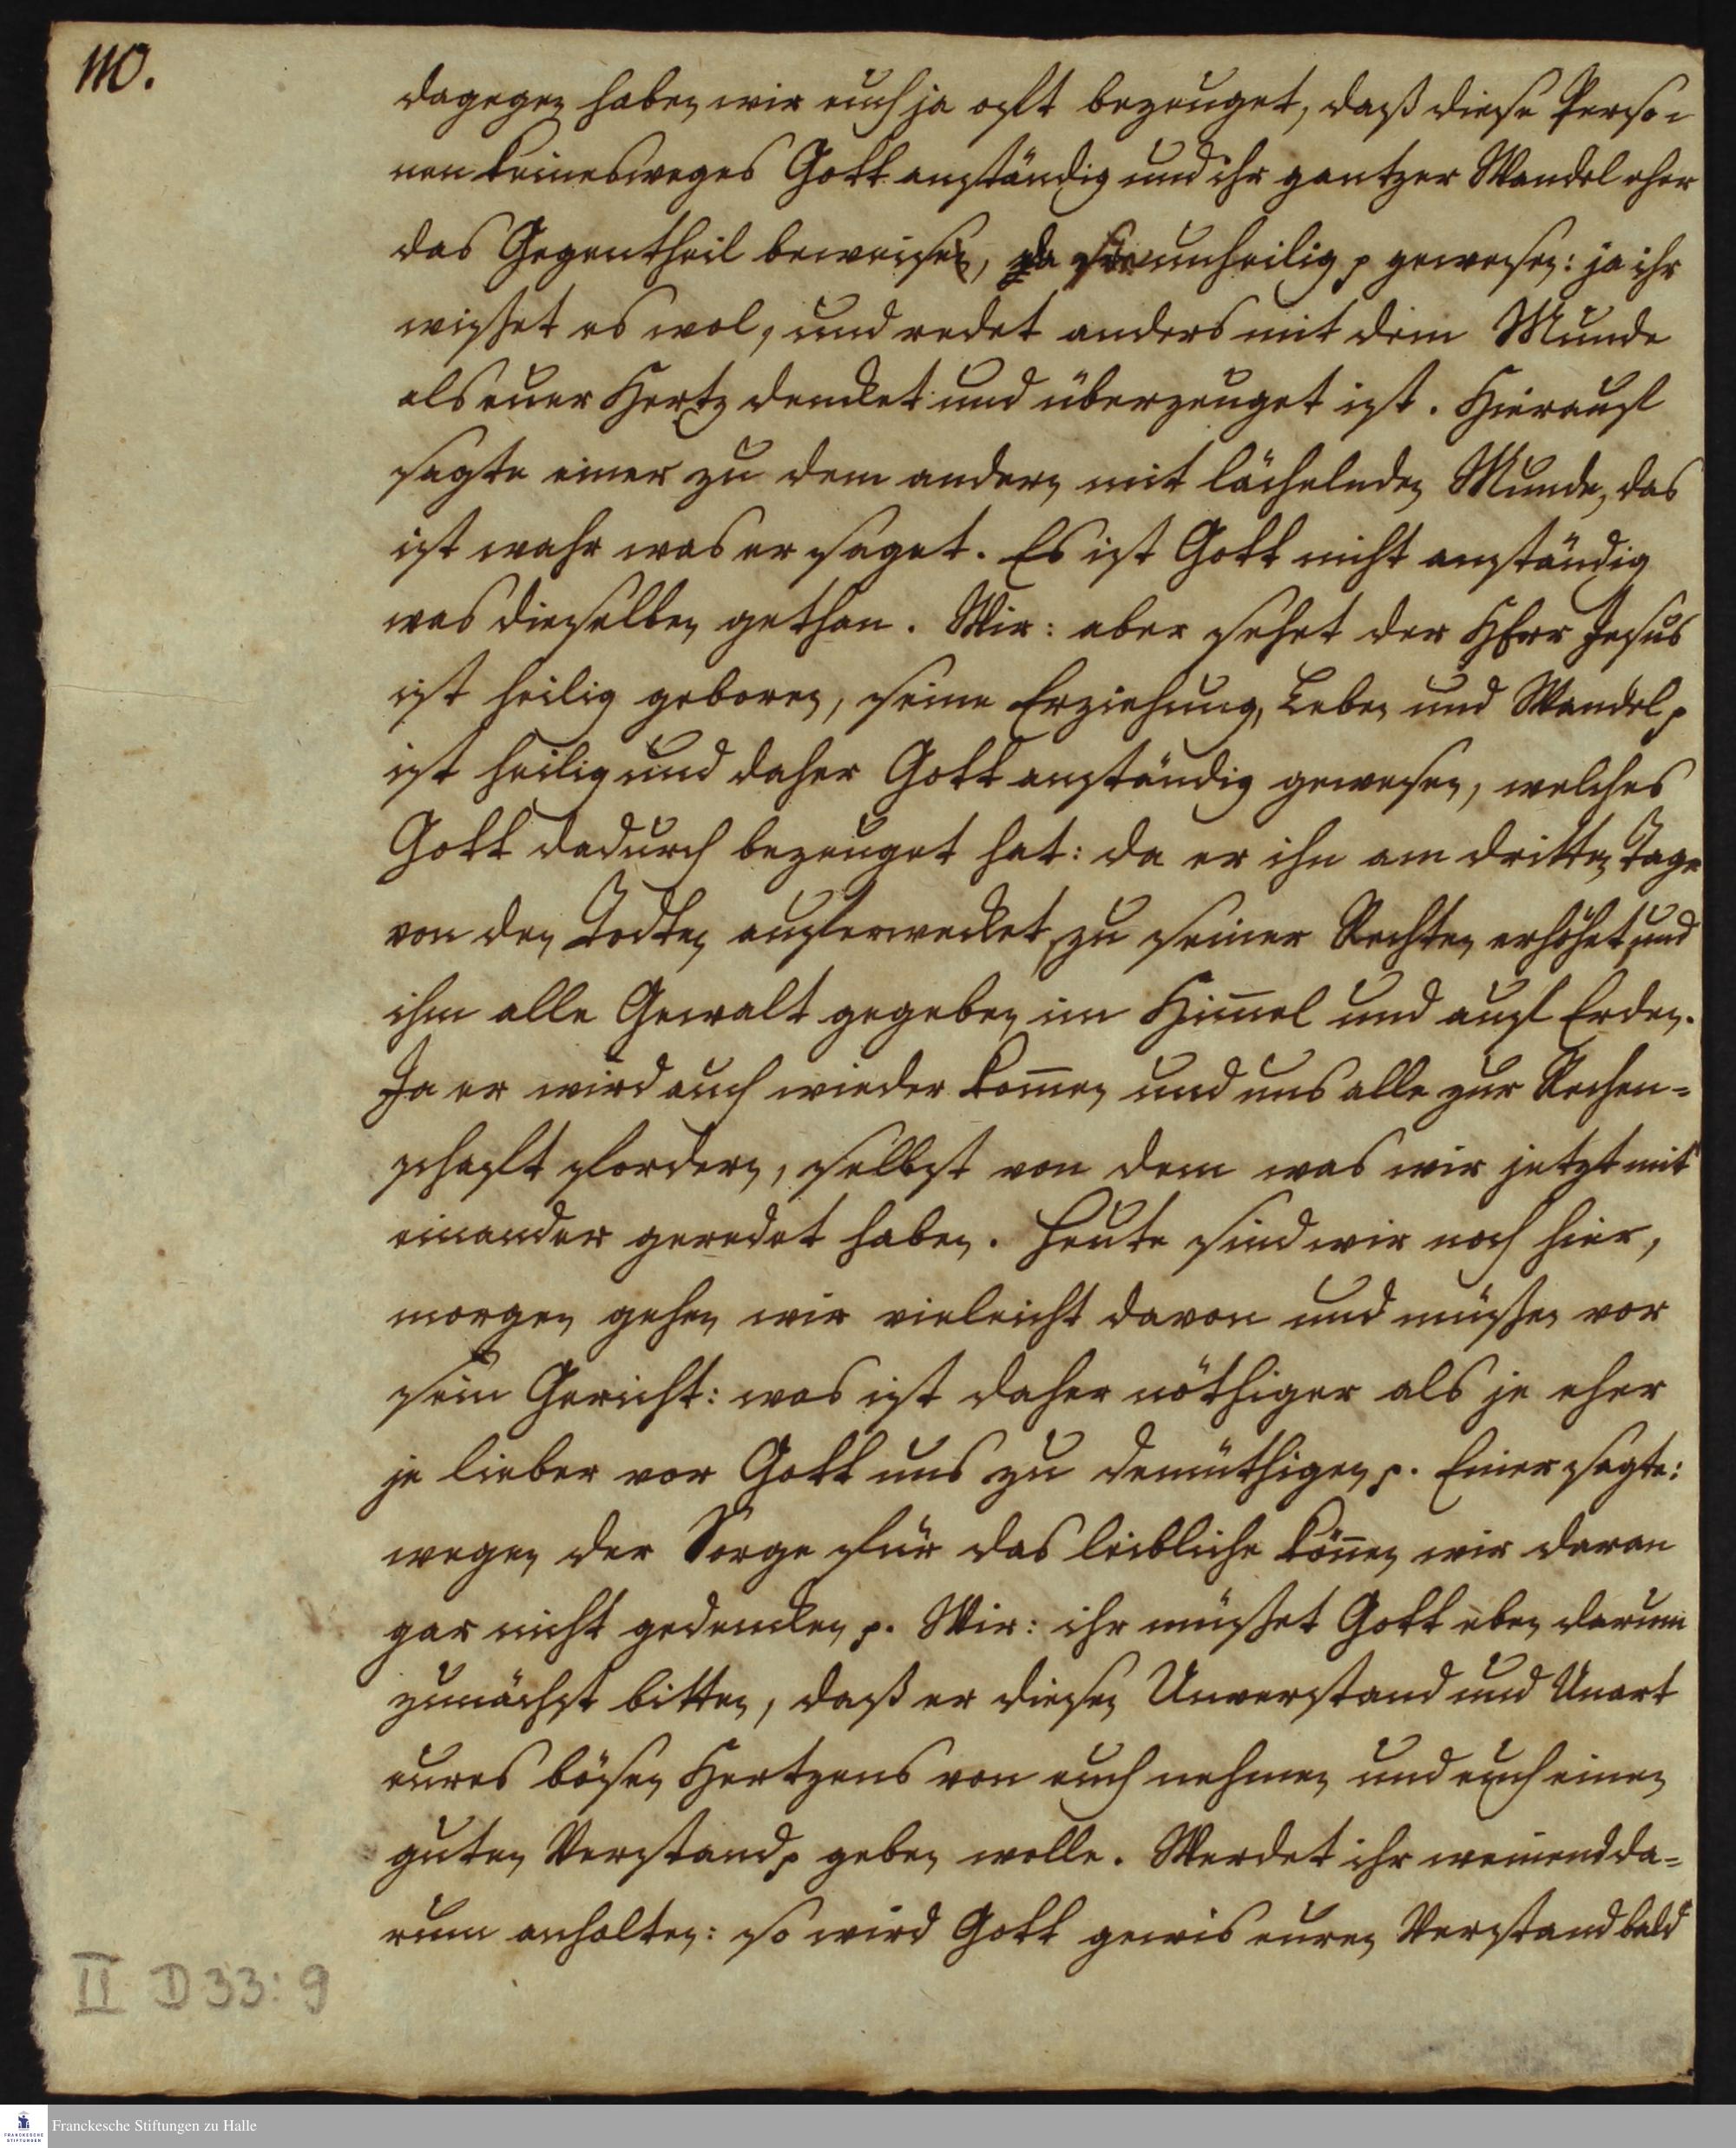 110.
dagegen haben wir euch ja oft bezeuget, daß diese Perso-
nen keinesweges Gott anständig und ihr gantzer Wandel eher
das Gegentheil beweiset, da sie unheilig p gewesen: ja ihr
wisset es wol, und redet anders mit dem Munde
als euer Hertz dencket und überzeuget ist. Hierauf
sagte einer zu dem andern mit lächelnden Munde, das
ist wahr was er saget. Es ist Gott nicht anständig
was dieselben gethan. Wir: aber sehet der HErr Jesus
ist heilig geboren, seine Erziehung, Leben und Wandel p
ist heilig und daher Gott anständig gewesen, welches
Gott dadurch bezeuget hat: da er ihn am dritten Tage
von den Todten auferwecket, zu seiner Rechten erhöhet, und
ihm alle Gewalt gegeben im Him̅el und auf Erden.
Ja er wird auch wieder kom̅en und uns alle zur Rechen-
schaft fordern, selbst von dem was wir jetzt mit
einander geredet haben. Heute sind wir noch hier,
morgen gehen wir vieleicht davon und müssen vor
sein Gericht: was ist daher nöthiger als je eher
je lieber vor Gott uns zu demüthigen p. Einer sagte:
wegen der Sorge für das leibliche kön̅en wir daran
gar nicht gedencken p. Wir: ihr müsset Gott eben darum
zunächst bitten, daß er diesen Unverstand und Unart
eures bösen Hertzens von euch nehmen und euch einen
guten Verstand p geben wolle. Werdet ihr weinend da-
rum anhalten: so wird Gott gewis euren Verstand bald
II D 33: 9
Franckesche Stiftungen zu Halle
FRANCKESCHE
STIFTUNGEN